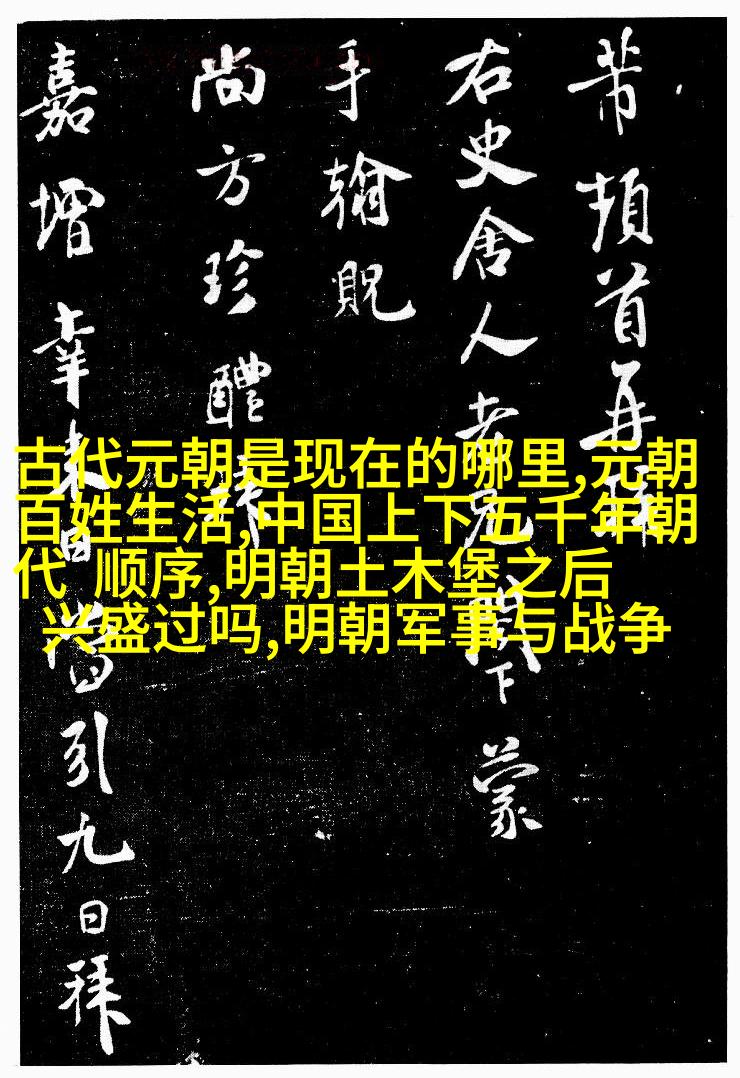 芾頓首再拜
右史舍人老兄下蒙
手翰貺
尚方珍醴拜
嘉增幸來日當引九日拜
古代元朝是现在的哪里,元朝
百姓生活,中国上下五千年朝
代 顺序,明朝土木堡之后
兴盛过吗,明朝军事与战争